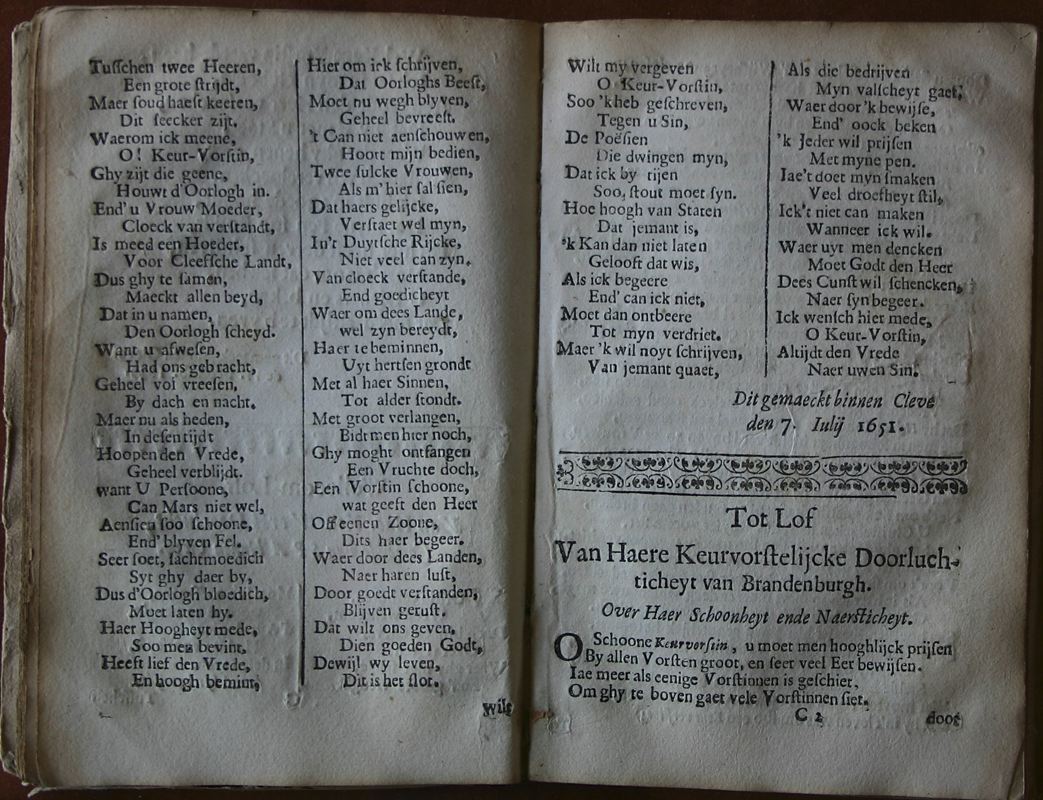 Tusschen twee Heeren,
Een grote strijdt,
Maer soud haest keeren,
Dit seecker zijt,
Waerom ick meene,
O! Keur-Vorstin,
Ghy zijt die geene,
Houwt d'Oorlogh in.
End' u Vrouw Moeder,
Cloeck van verstandt,
Is meed een Hoeder,
Voor Cleefsche Landt,
Dus ghy te samen,
Maeckt allen beyd,
Dat in u namen,
Den Oorlogh scheyd.
Want u afwesen,
Had ons gebracht,
Geheel vol vreesen,
By dach en nacht.
Maer nu als heden,
In desen tijdt
Hoopen den Vrede,
Geheel verblijdt.
want U Persoone,
Can Mars niet wel,
Aensien soo schoone,
End' blyven Fel.
Seer soet, sachtmoedich
Syt ghy daer by,
Dus d'Oorlogh bloedich,
Moet laten hy.
Haer Hoogheyt mede,
Soo men bevint,
Heeft lief den Vrede,
En hoogh bemint,
Hier om ick schrijven,
Dat Oorloghs Beest,
Moet nu wegh blyven,
Geheel bevreest.
't Can niet aenschouwen,
Hoort mijn bedien,
Twee sulcke Vrouwen,
Als m' hier sal sien,
Dat haers gelijcke,
Verstaet wel myn,
In't Duytsche Rijcke,
Niet veel can zyn.
Van cloeck verstande,
End goedicheyt
Waer om dees Lande,
wel zyn bereydt,
Haer te beminnen,
Uyt hertsen grondt
Met al haer Sinnen,
Tot alder stondt.
Met groot verlangen,
Bidt men hier noch,
Ghy moght ontfangen
Een Vruchte doch,
Een Vorstin schoone,
wat geeft den Heer
Off eenen Zoone,
Dits haer begeer.
Waer door dees Landen,
Naer haren lust,
Door goedt verstanden,
Blijven gerust.
Dat wilt ons geven,
Dien goeden Godt,
Dewijl wy leven,
Dit is het slot.
Wilt
Wilt my vergeven
O Keur-Vorstin,
Soo 'k heb geschreven,
Tegen u Sin,
De Poësien
Die dwingen myn,
Dat ick by tijen
Soo, stout moet syn.
Hoe hoogh van Staten
Dat jemant is,
'k Kan dan niet laten
Gelooft dat wis,
Als ick begeere
End' can ick niet,
Moet dan ontbeere
Tot myn verdriet.
Maer 'k wil noyt schrijven,
Van jemant quaet,
Als die bedrijven
Myn valscheyt gaet;
Waer door 'k bewijse,
End' oock beken
'k Jeder wil prijsen
Met myne pen.
Iae't doet myn smaken
Veel droefheyt stil,
Ick't niet can maken
Wanneer ick wil.
Waer uyt men dencken
Moet Godt den Heer
Dees Cunst wil schencken,
Naer syn begeer.
Ick wensch hier mede,
O Keur-Vorstin,
Altijdt den Vrede
Naer uwen Sin.
Dit gemaeckt binnen Cleve
den 7. Iulij 1651.
Tot Lof
Van Haere Keurvorstelijcke Doorluch-
ticheyt van Brandenburgh.
Over Haer Schoonheyt ende Naersticheyt.
O Schoone Keurvorstin, u moet men hooghlijck prijsen
By allen Vorsten groot, en seer veel Eer bewijsen.
Iae meer als eenige Vorstinnen is geschiet,
Om ghy te boven gaet vele Vorstinnen siet.
C 2
door